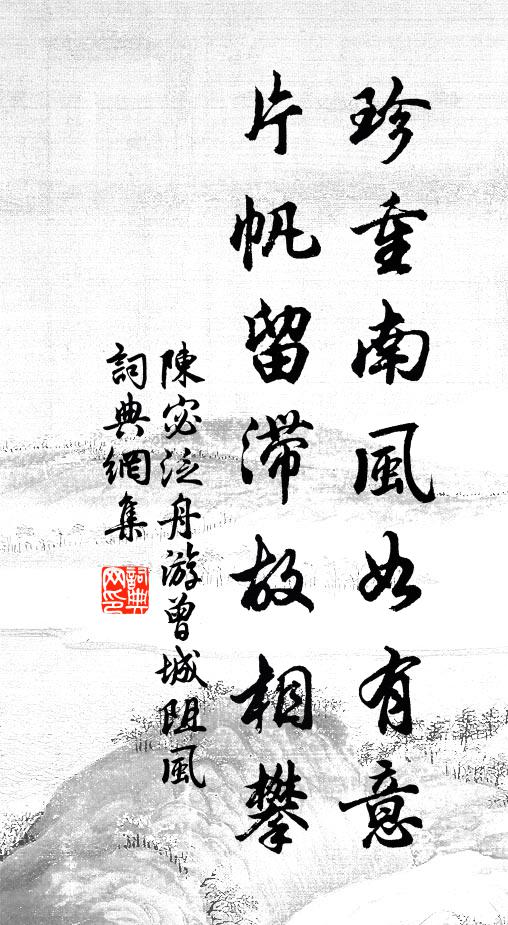 珍重南風如有意
片帆留滯故相攀
陳宓泛舟游曾城阻風
詞典網集
詞典
网印